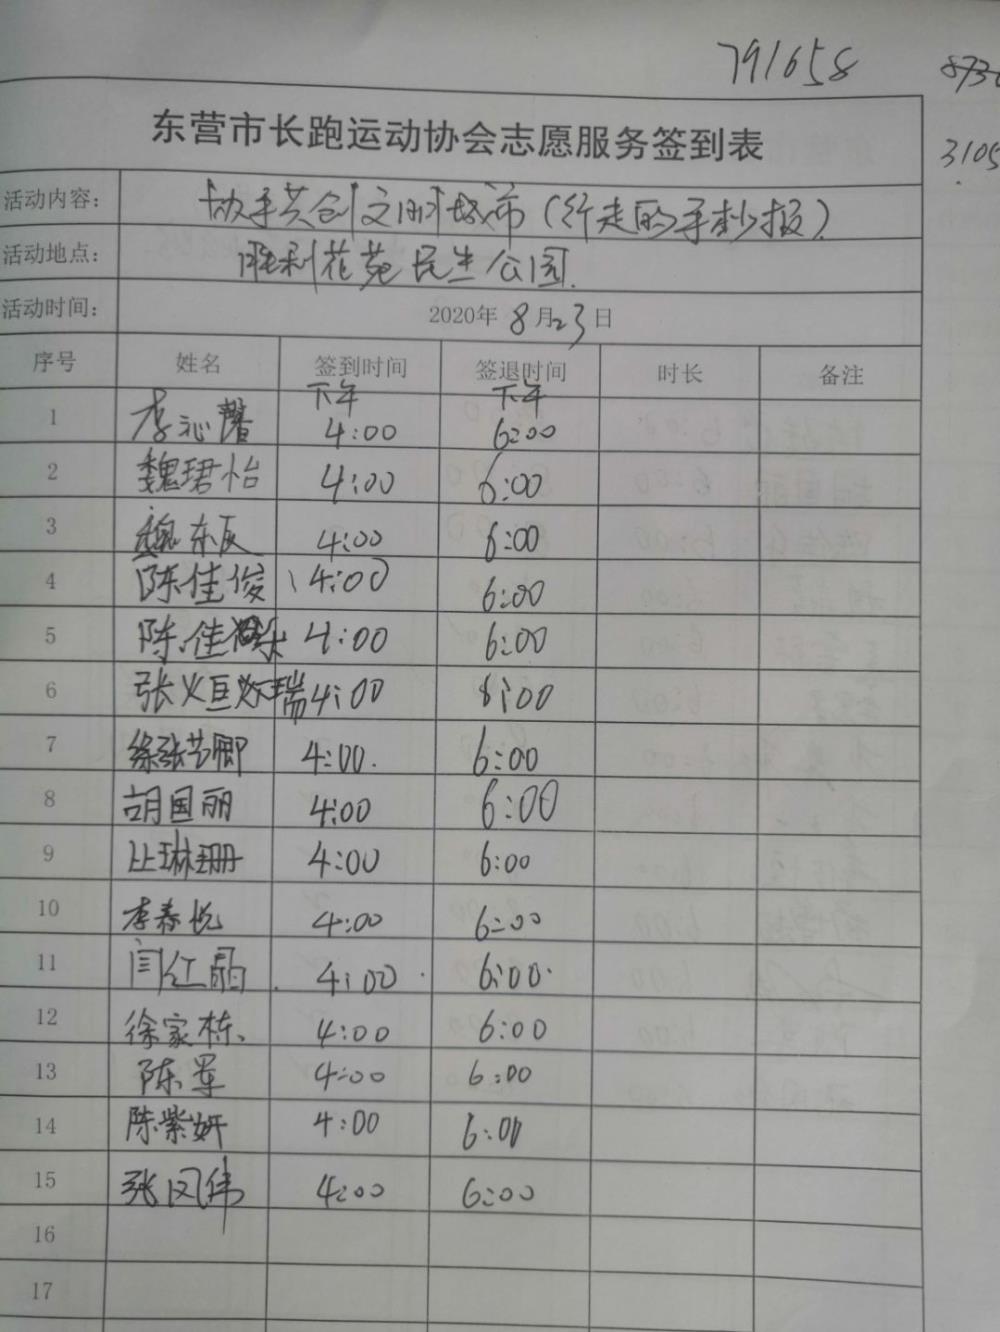 791658
3105
东营市长跑运动协会志愿服务签到表
活动内容: 协手共创文明城市(行走的手抄报)
活动地点: 胜利花苑民生公园
活动时间: 2020年8月23日
序号 姓名 签到时间 签退时间 时长 备注
下午 下午
1 李沁馨 4:00 6:00
2 魏珺怡 4:00 6:00
3 魏东辰 4:00 6:00
4 陈佳俊 4:00 6:00
5 陈佳 4:00 6:00
6 张 瑞 4:00 6:00
7 徐张艺卿 4:00. 6:00
8 胡国丽 4:00 6:00
9 林珊 4:00 6:00
10 李春悦 4:00 6:00
11 闫红晶 4:00 6:00
12 徐家栋 4:00 6:00
13 陈军 4:00 6:00
14 陈紫妍 4:00 6:00
15 张风伟 4:00 6:00
16
17